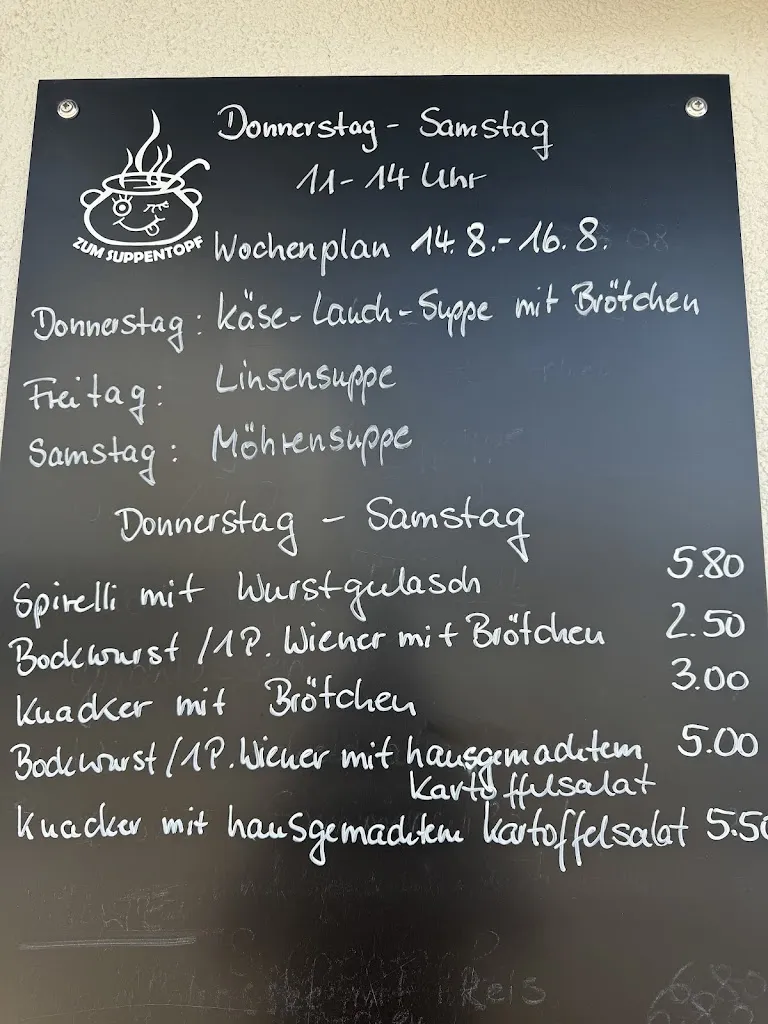 Donnerstag - Samstag
11 - 14 Uhr
ZUM SUPPENTOPF
Wochenplan 14.8. - 16.8.
Donnerstag: Käse-Lauch-Suppe mit Brötchen
Freitag: Linsensuppe
Samstag: Möhrensuppe
Donnerstag - Samstag
Spirelli mit Wurstgulasch 5.80
Bockwurst /1P. Wiener mit Brötchen 2.50
Knacker mit Brötchen 3.00
Bockwurst /1P. Wiener mit hausgemachtem 5.00
Kartoffelsalat
Knacker mit hausgemachtem Kartoffelsalat 5.50
Reis 6.80